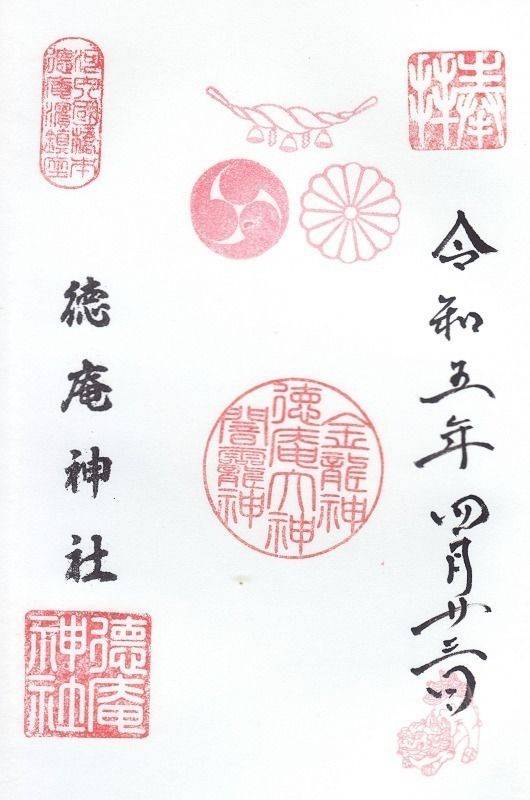 奉拝
令和五年四月廿三日
金龍神
徳庵大神
闇龗神
徳庵神社
徳庵神社